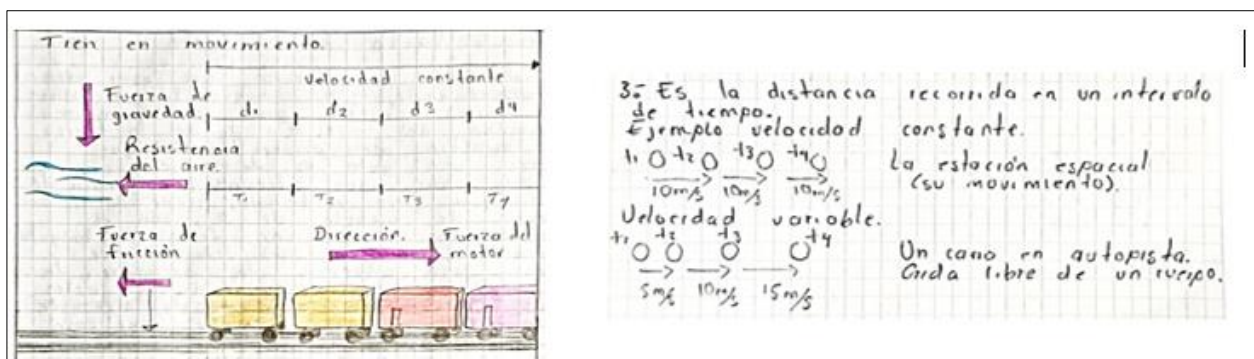 Tren en movimiento.
Velocidad constante
Fuerza de
gravedad.
d1 d2 d3 d4
Resistencia
del aire.
T1 T2 T3 T4
Fuerza de
fricción
Dirección.
Fuerza del
motor
3.- Es la distancia recorrida en un intervalo
de tiempo.
Ejemplo velocidad constante.
t1 t2 t3 t4
10m/s 10m/s 10m/s
La estación espacial
(su movimiento).
Velocidad variable.
t1 t2 t3 t4
5m/s 10m/s 15m/s
Un carro en autopista.
Caida libre de un cuerpo.